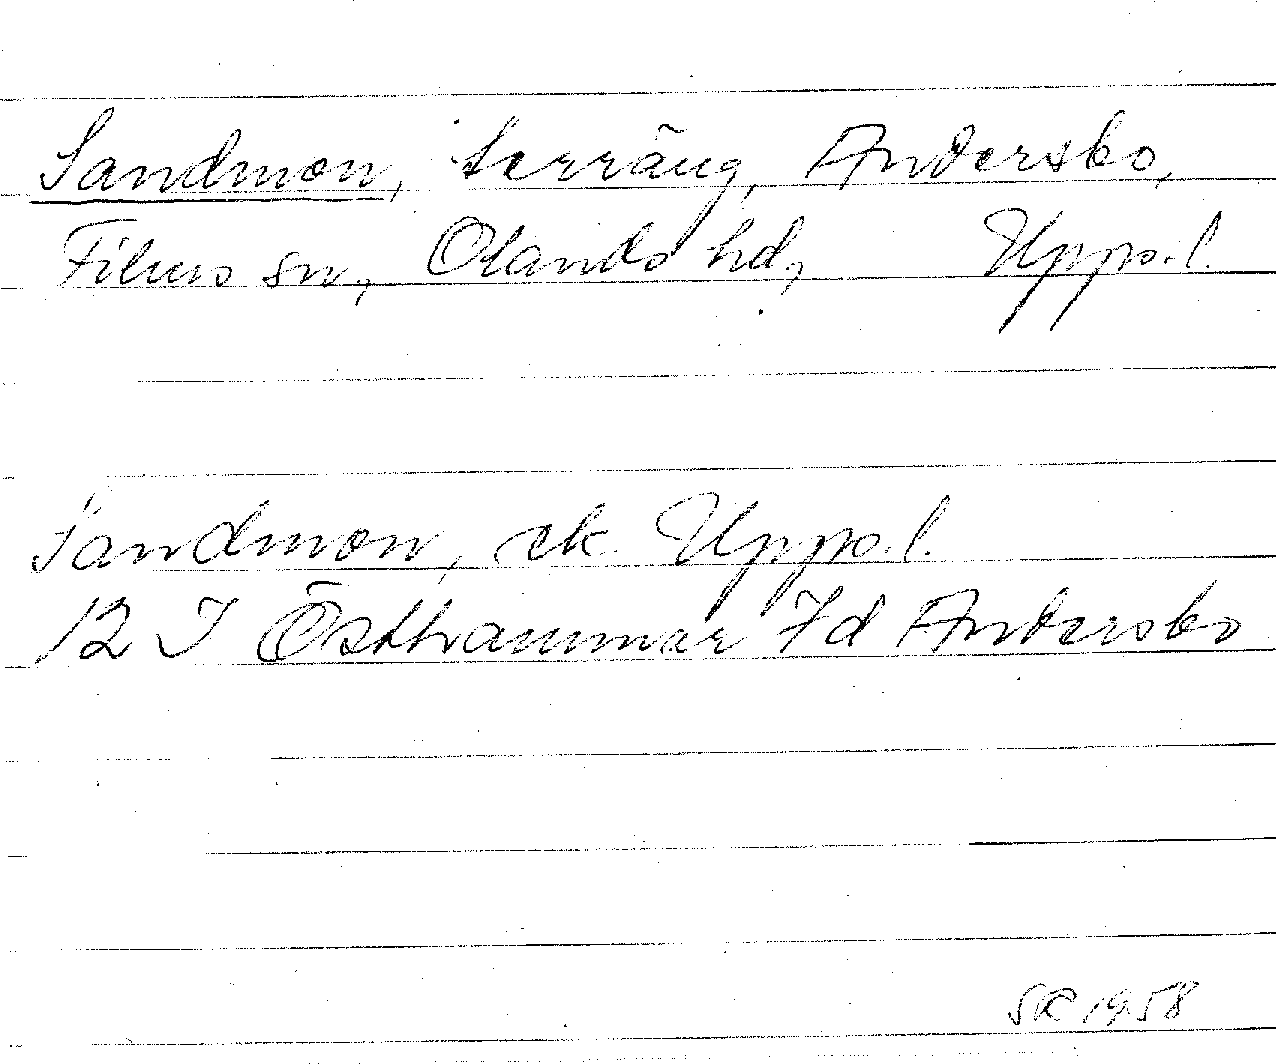 Sandmon, terräng, Andersbo,
Films sn, Olands hd, Upps.l.
Sandmon, ek. Upps.l.
12 I Östhammar 7d Andersbo
SR 1958